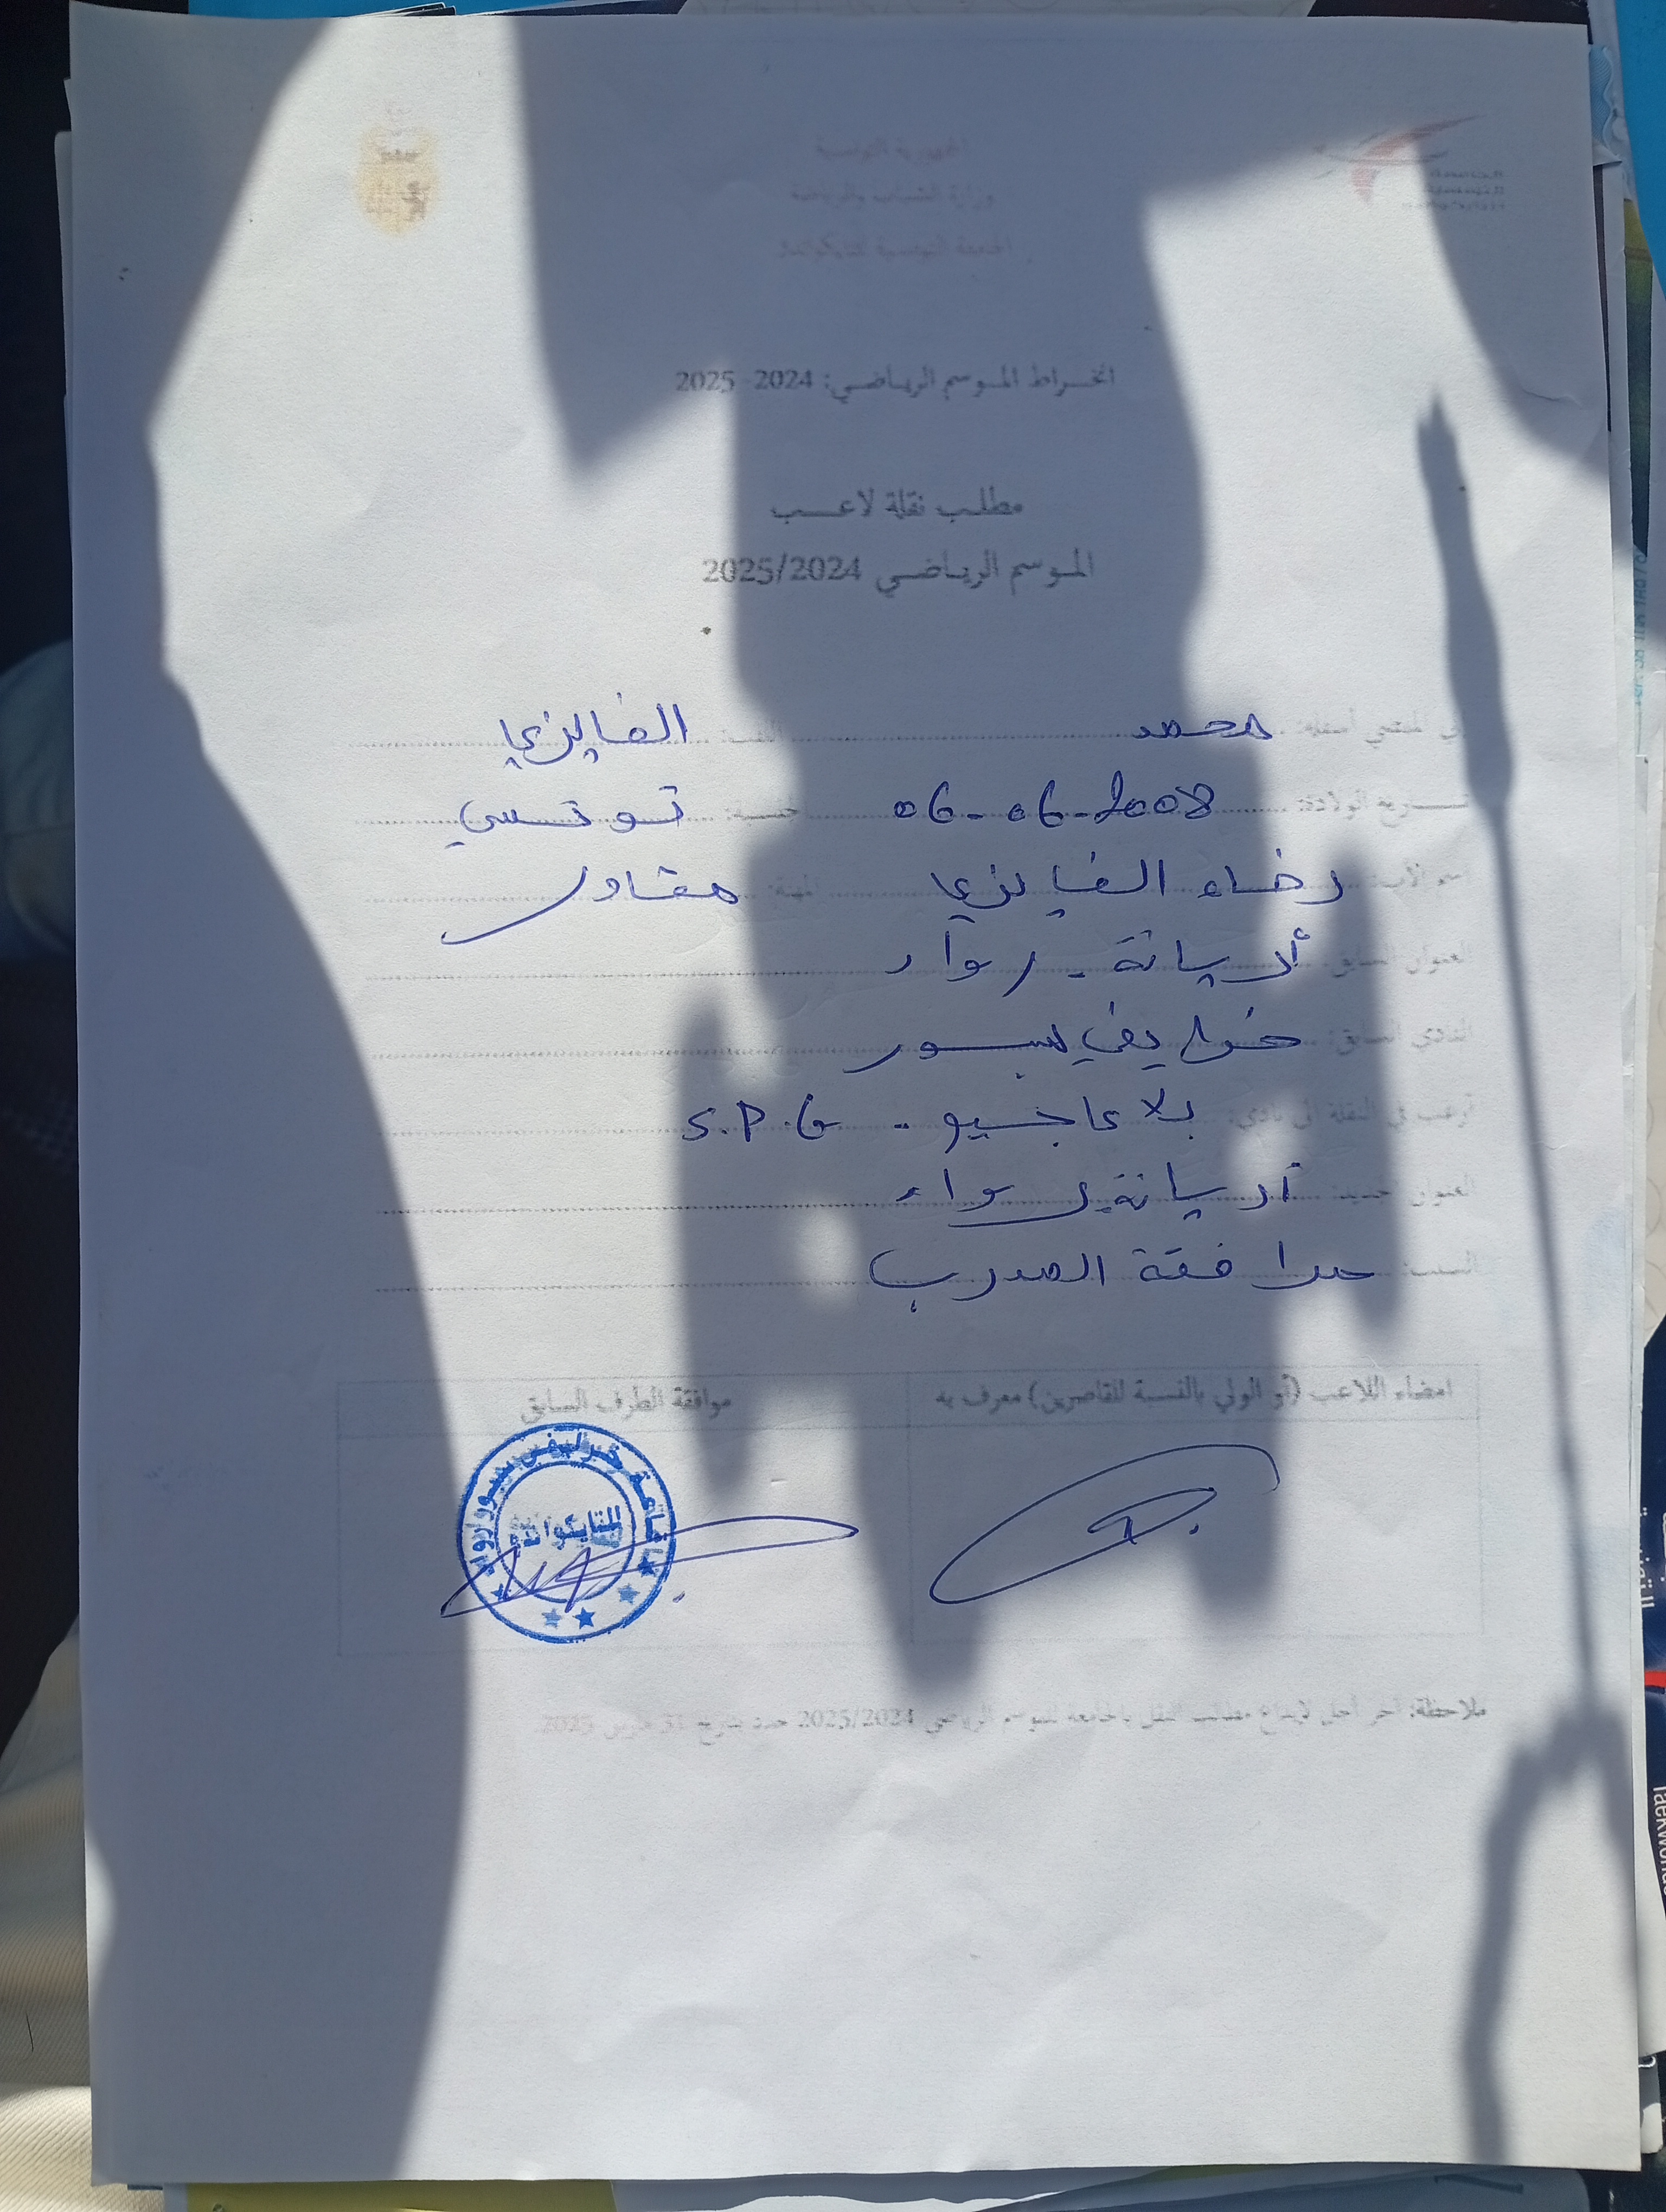 الجمهورية التونسية
وزارة الشباب والرياضة
الجامعة التونسية للتايكواندو
انخراط الموسم الرياضي: 2024-2025
مطلب نقلة لاعب
الموسم الرياضي 2025/2024
إني الممضي أسفله: محمد اللقب: الفايزي
تاريخ الولادة: 06-06-2008 جنسية: تونسي
اسم الأب: رضاء الفايزي المهنة: مقاول
العنوان السابق: أريانة - رواد
النادي السابق: سبور
أرغب في النقلة إلى نادي: S.P.G -
العنوان الجديد: أريانة رواد
السبب: مرافقة المدرب
امضاء اللاعب (أو الولي بالنسبة للقاصرين) معرف به
موافقة الطرف السابق
للتايكواندو
ملاحظة: آخر أجل لإيداع مطالب النقل بالجامعة للموسم الرياضي 2025/2024 حدد بتاريخ 31 مارس 2025